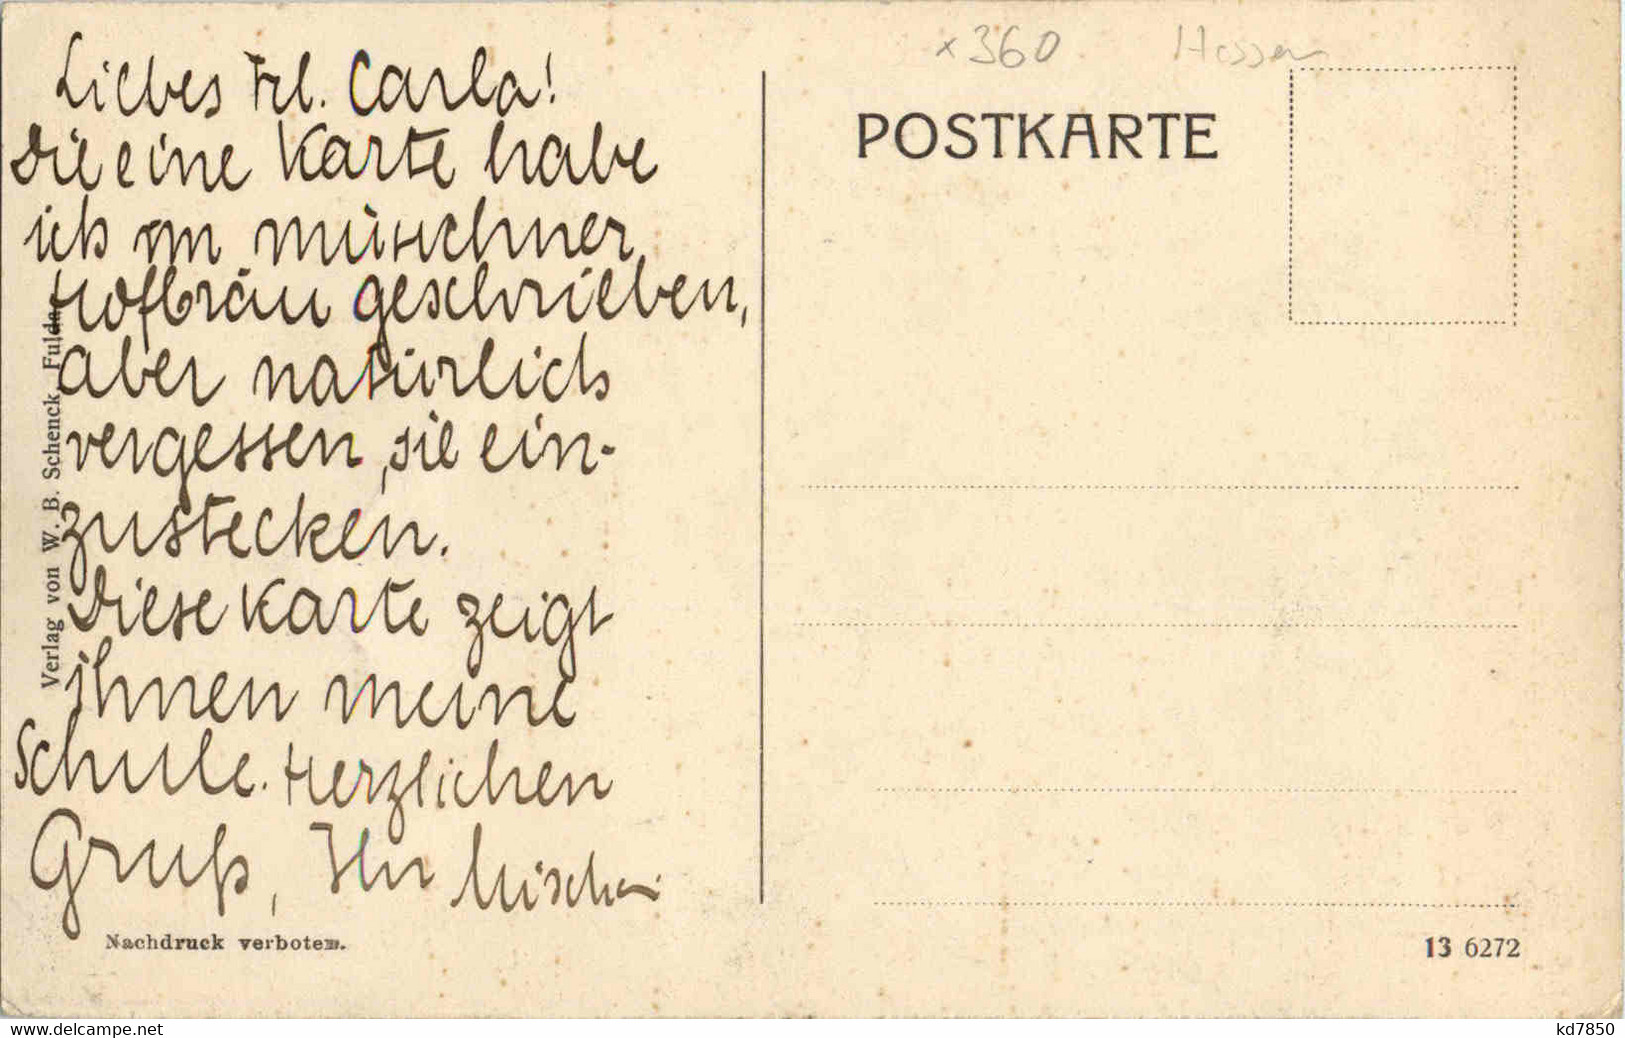 Liebes Frl. Carla!
Die eine Karte habe
ich im Münchner
Hofbräu geschrieben,
aber natürlich
vergessen, sie ein-
zustecken.
Diese Karte zeigt
ihnen meine
Schule. Herzlichen
Gruß, Ihr
Verlag von W. B. Schenck, Fulda.
Nachdruck verboten.
x 360 Hessen
POSTKARTE
13 6272
www.delcampe.net
kd7850